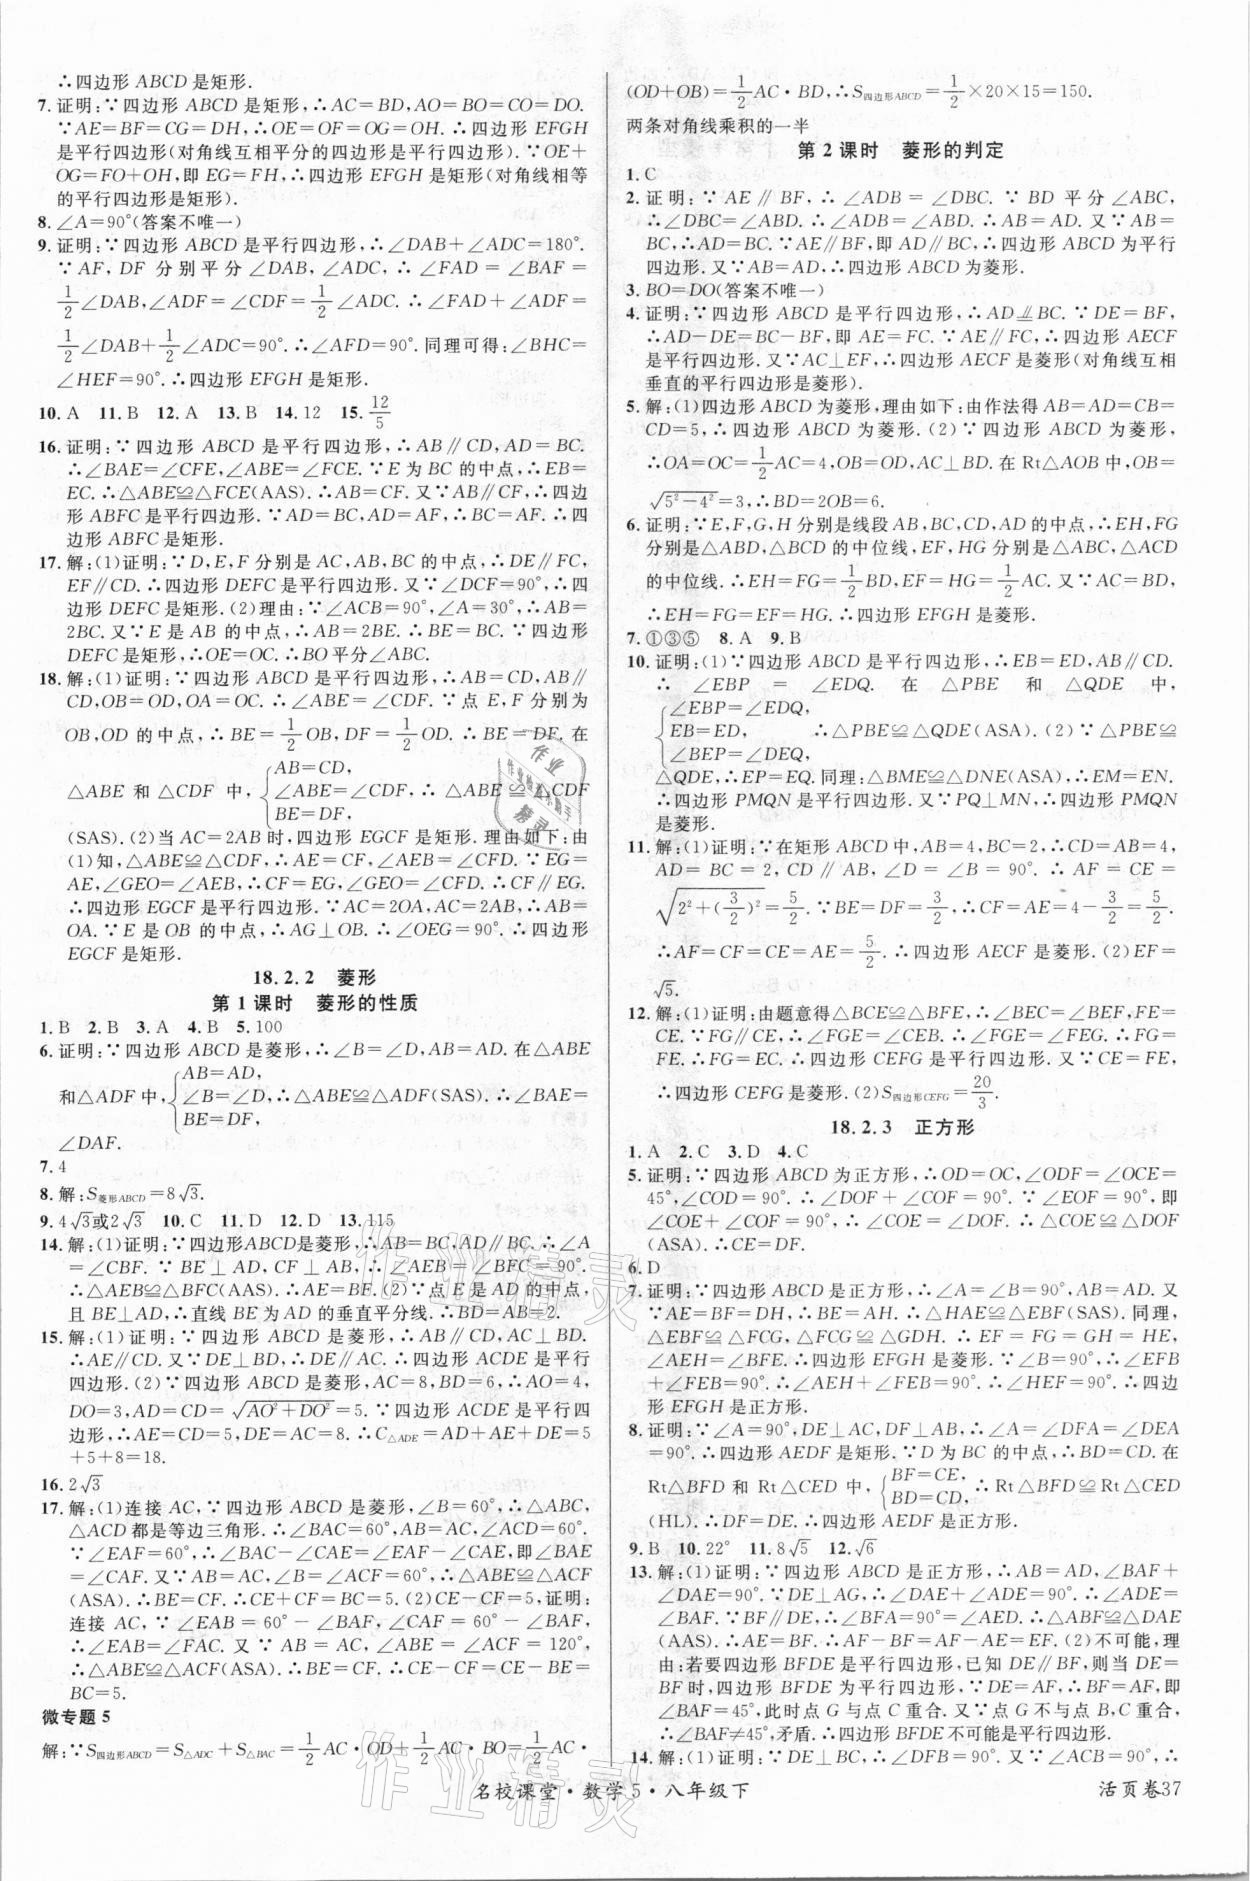 ∴四边形 ABCD 是矩形.
7.证明:∵四边形 ABCD 是矩形,∴AC=BD,AO=BO=CO=DO.
∵AE=BF=CG=DH,∴OE=OF=OG=OH.∴四边形 EFGH
是平行四边形(对角线互相平分的四边形是平行四边形).∵OE+
OG=FO+OH,即 EG=FH,∴四边形 EFGH 是矩形(对角线相等
的平行四边形是矩形).
8.∠A=90°(答案不唯一)
9.证明:∵四边形 ABCD 是平行四边形,∴∠DAB+∠ADC=180°.
∵AF,DF 分别平分∠DAB,∠ADC,∴∠FAD=∠BAF=
1/2∠DAB,∠ADF=∠CDF=1/2∠ADC.∴∠FAD+∠ADF=
1/2∠DAB+1/2∠ADC=90°.∴∠AFD=90°.同理可得:∠BHC=
∠HEF=90°.∴四边形 EFGH 是矩形.
10.A 11.B 12.A 13.B 14.12 15.12/5
16.证明:∵四边形 ABCD 是平行四边形,∴AB∥CD,AD=BC.
∴∠BAE=∠CFE,∠ABE=∠FCE.∵E 为 BC 的中点,∴EB=
EC.∴△ABE≌△FCE(AAS).∴AB=CF.又∵AB∥CF,∴四边
形 ABFC 是平行四边形.∵AD=BC,AD=AF,∴BC=AF.∴四
边形 ABFC 是矩形.
17.解:(1)证明:∵D,E,F 分别是 AC,AB,BC 的中点,∴DE∥FC,
EF∥CD.∴四边形 DEFC 是平行四边形.又∵∠DCF=90°,∴四
边形 DEFC 是矩形.(2)理由:∵∠ACB=90°,∠A=30°,∴AB=
2BC.又∵E 是 AB 的中点,∴AB=2BE.∴BE=BC.∵四边形
DEFC 是矩形,∴OE=OC.∴BO平分∠ABC.
18.解:(1)证明:∵四边形 ABCD 是平行四边形,∴AB=CD,AB∥
CD,OB=OD,OA=OC.∴∠ABE=∠CDF.∵点 E,F 分别为
OB,OD 的中点,∴BE=1/2OB,DF=1/2OD.∴BE=DF.在
△ABE 和△CDF 中,{AB=CD,∠ABE=∠CDF,BE=DF,∴△ABE≌△CDF
(SAS).(2)当 AC=2AB 时,四边形 EGCF 是矩形.理由如下:由
(1)知,△ABE≌△CDF,∴AE=CF,∠AEB=∠CFD.∵EG=
AE,∠GEO=∠AEB,∴CF=EG,∠GEO=∠CFD.∴CF∥EG.
∴四边形 EGCF 是平行四边形.∵AC=2OA,AC=2AB,∴AB=
OA.∵E 是 OB 的中点,∴AG⊥OB.∴∠OEG=90°.∴四边形
EGCF 是矩形.
18.2.2 菱形
第1课时 菱形的性质
1.B 2.B 3.A 4.B 5.100
6.证明:∵四边形 ABCD 是菱形,∴∠B=∠D,AB=AD.在△ABE
和△ADF 中,{AB=AD,∠B=∠D,BE=DF,∴△ABE≌△ADF(SAS).∴∠BAE=
∠DAF.
7.4
8.解:S菱形ABCD=8√3.
9.4√3或2√3 10.C 11.D 12.D 13.115
14.解:(1)证明:∵四边形ABCD是菱形,∴AB=BC,AD∥BC.∴∠A
=∠CBF.∵BE⊥AD,CF⊥AB,∴∠AEB=∠BFC=90°.
∴△AEB≌△BFC(AAS).∴BF=AE.(2)∵点 E 是 AD 的中点,
且 BE⊥AD,∴直线 BE 为 AD 的垂直平分线.∴BD=AB=2.
15.解:(1)证明:∵四边形 ABCD 是菱形,∴AB∥CD,AC⊥BD.
∴AE∥CD.又∵DE⊥BD,∴DE∥AC.∴四边形 ACDE 是平行
四边形.(2)∵四边形 ABCD 是菱形,AC=8,BD=6,∴AO=4,
DO=3,AD=CD=√(AO²+DO²)=5.∵四边形 ACDE 是平行四
边形,∴AE=CD=5,DE=AC=8.∴C△ADE=AD+AE+DE=5
+5+8=18.
16.2√3
17.解:(1)连接 AC,∵四边形 ABCD 是菱形,∠B=60°,∴△ABC,
△ACD都是等边三角形.∴∠BAC=60°,AB=AC,∠ACD=60°.
∵∠EAF=60°,∴∠BAC-∠CAE=∠EAF-∠CAE,即∠BAE
=∠CAF.又∵AB=AC,∠B=∠ACF=60°,∴△ABE≌△ACF
(ASA).∴BE=CF.∴CE+CF=BC=5.(2)CE-CF=5,证明:
连接 AC,∵∠EAB=60°-∠BAF,∠CAF=60°-∠BAF,
∴∠EAB=∠FAC.又∵AB=AC,∠ABE=∠ACF=120°,
∴△ABE≌△ACF(ASA).∴BE=CF.∴CE-CF=CE-BE=
BC=5.
微专题 5
解:∵S四边形ABCD=S△ADC+S△BAC=1/2AC·OD+1/2AC·BO=1/2AC·
(OD+OB)=1/2AC·BD,∴S四边形ABCD=1/2×20×15=150.
两条对角线乘积的一半
第2课时 菱形的判定
1.C
2.证明:∵AE∥BF,∴∠ADB=∠DBC.∵BD 平分∠ABC,
∴∠DBC=∠ABD.∴∠ADB=∠ABD.∴AB=AD.又∵AB=
BC,∴AD=BC.∵AE∥BF,即 AD∥BC,∴四边形 ABCD 为平行
四边形.又∵AB=AD,∴四边形 ABCD 为菱形.
3.BO=DO(答案不唯一)
4.证明:∵四边形 ABCD 是平行四边形,∴AD⫫BC.∵DE=BF,
∴AD-DE=BC-BF,即 AE=FC.∵AE∥FC,∴四边形 AECF
是平行四边形.又∵AC⊥EF,∴四边形 AECF 是菱形(对角线互相
垂直的平行四边形是菱形).
5.解:(1)四边形 ABCD 为菱形,理由如下:由作法得 AB=AD=CB=
CD=5,∴四边形 ABCD 为菱形.(2)∵四边形 ABCD 为菱形,
∴OA=OC=1/2AC=4,OB=OD,AC⊥BD.在 Rt△AOB 中,OB=
√(5²-4²)=3,∴BD=2OB=6.
6.证明:∵E,F,G,H 分别是线段 AB,BC,CD,AD 的中点,∴EH,FG
分别是△ABD,△BCD 的中位线,EF,HG 分别是△ABC,△ACD
的中位线.∴EH=FG=1/2BD,EF=HG=1/2AC.又∵AC=BD,
∴EH=FG=EF=HG.∴四边形 EFGH 是菱形.
7.①③⑤ 8.A 9.B
10.证明:(1)∵四边形 ABCD 是平行四边形,∴EB=ED,AB∥CD.
∴∠EBP=∠EDQ.在△PBE 和△QDE 中,
{∠EBP=∠EDQ,EB=ED,∠BEP=∠DEQ,∴△PBE≌△QDE(ASA).(2)∵△PBE≌
△QDE,∴EP=EQ.同理:△BME≌△DNE(ASA),∴EM=EN.
∴四边形 PMQN 是平行四边形.又∵PQ⊥MN,∴四边形 PMQN
是菱形.
11.解:(1)证明:∵在矩形 ABCD 中,AB=4,BC=2,∴CD=AB=4,
AD=BC=2,CD∥AB,∠D=∠B=90°.∴AF=CE=
√(2²+(3/2)²)=5/2.∵BE=DF=3/2,∴CF=AE=4-3/2=5/2.
∴AF=CF=CE=AE=5/2.∴四边形 AECF 是菱形.(2)EF=
√5.
12.解:(1)证明:由题意得△BCE≌△BFE,∴∠BEC=∠BEF,FE=
CE.∵FG∥CE,∴∠FGE=∠CEB.∴∠FGE=∠FEG.∴FG=
FE.∴FG=EC.∴四边形 CEFG 是平行四边形.又∵CE=FE,
∴四边形 CEFG 是菱形.(2)S四边形CEFG=20/3.
18.2.3 正方形
1.A 2.C 3.D 4.C
5.证明:∵四边形 ABCD 为正方形,∴OD=OC,∠ODF=∠OCE=
45°,∠COD=90°.∴∠DOF+∠COF=90°.∵∠EOF=90°,即
∠COE+∠COF=90°,∴∠COE=∠DOF.∴△COE≌△DOF
(ASA).∴CE=DF.
6.D
7.证明:∵四边形 ABCD 是正方形,∴∠A=∠B=90°,AB=AD.又
∵AE=BF=DH,∴BE=AH.∴△HAE≌△EBF(SAS).同理,
△EBF≌△FCG,△FCG≌△GDH.∴EF=FG=GH=HE,
∠AEH=∠BFE.∴四边形 EFGH 是菱形.∵∠B=90°,∴∠EFB
+∠FEB=90°.∴∠AEH+∠FEB=90°.∴∠HEF=90°.∴四边
形 EFGH 是正方形.
8.证明:∵∠A=90°,DE⊥AC,DF⊥AB,∴∠A=∠DFA=∠DEA
=90°.∴四边形 AEDF 是矩形.∵D 为 BC 的中点,∴BD=CD.在
Rt△BFD 和 Rt△CED 中,{BF=CE,BD=CD,∴Rt△BFD≌Rt△CED
(HL).∴DF=DE.∴四边形 AEDF 是正方形.
9.B 10.22° 11.8√5 12.√6
13.解:(1)证明:∵四边形 ABCD 是正方形,∴AB=AD,∠BAF+
∠DAE=90°.∵DE⊥AG,∴∠DAE+∠ADE=90°.∴∠ADE=
∠BAF.∵BF∥DE,∴∠BFA=90°=∠AED.∴△ABF≌△DAE
(AAS).∴AE=BF.∴AF-BF=AF-AE=EF.(2)不可能,理
由:若要四边形 BFDE 是平行四边形,已知 DE∥BF,则当 DE=
BF 时,四边形 BFDE 为平行四边形.∵DE=AF,∴BF=AF,即
∠BAF=45°,此时点 G 与点 C 重合.又∵点 G 不与点 B,C 重合,
∴∠BAF≠45°,矛盾.∴四边形 BFDE 不可能是平行四边形.
14.解:(1)证明:∵DE⊥BC,∴∠DFB=90°.又∵∠ACB=90°,∴
名校课堂·数学5·八年级下
活页卷37
作业精灵
作业精灵